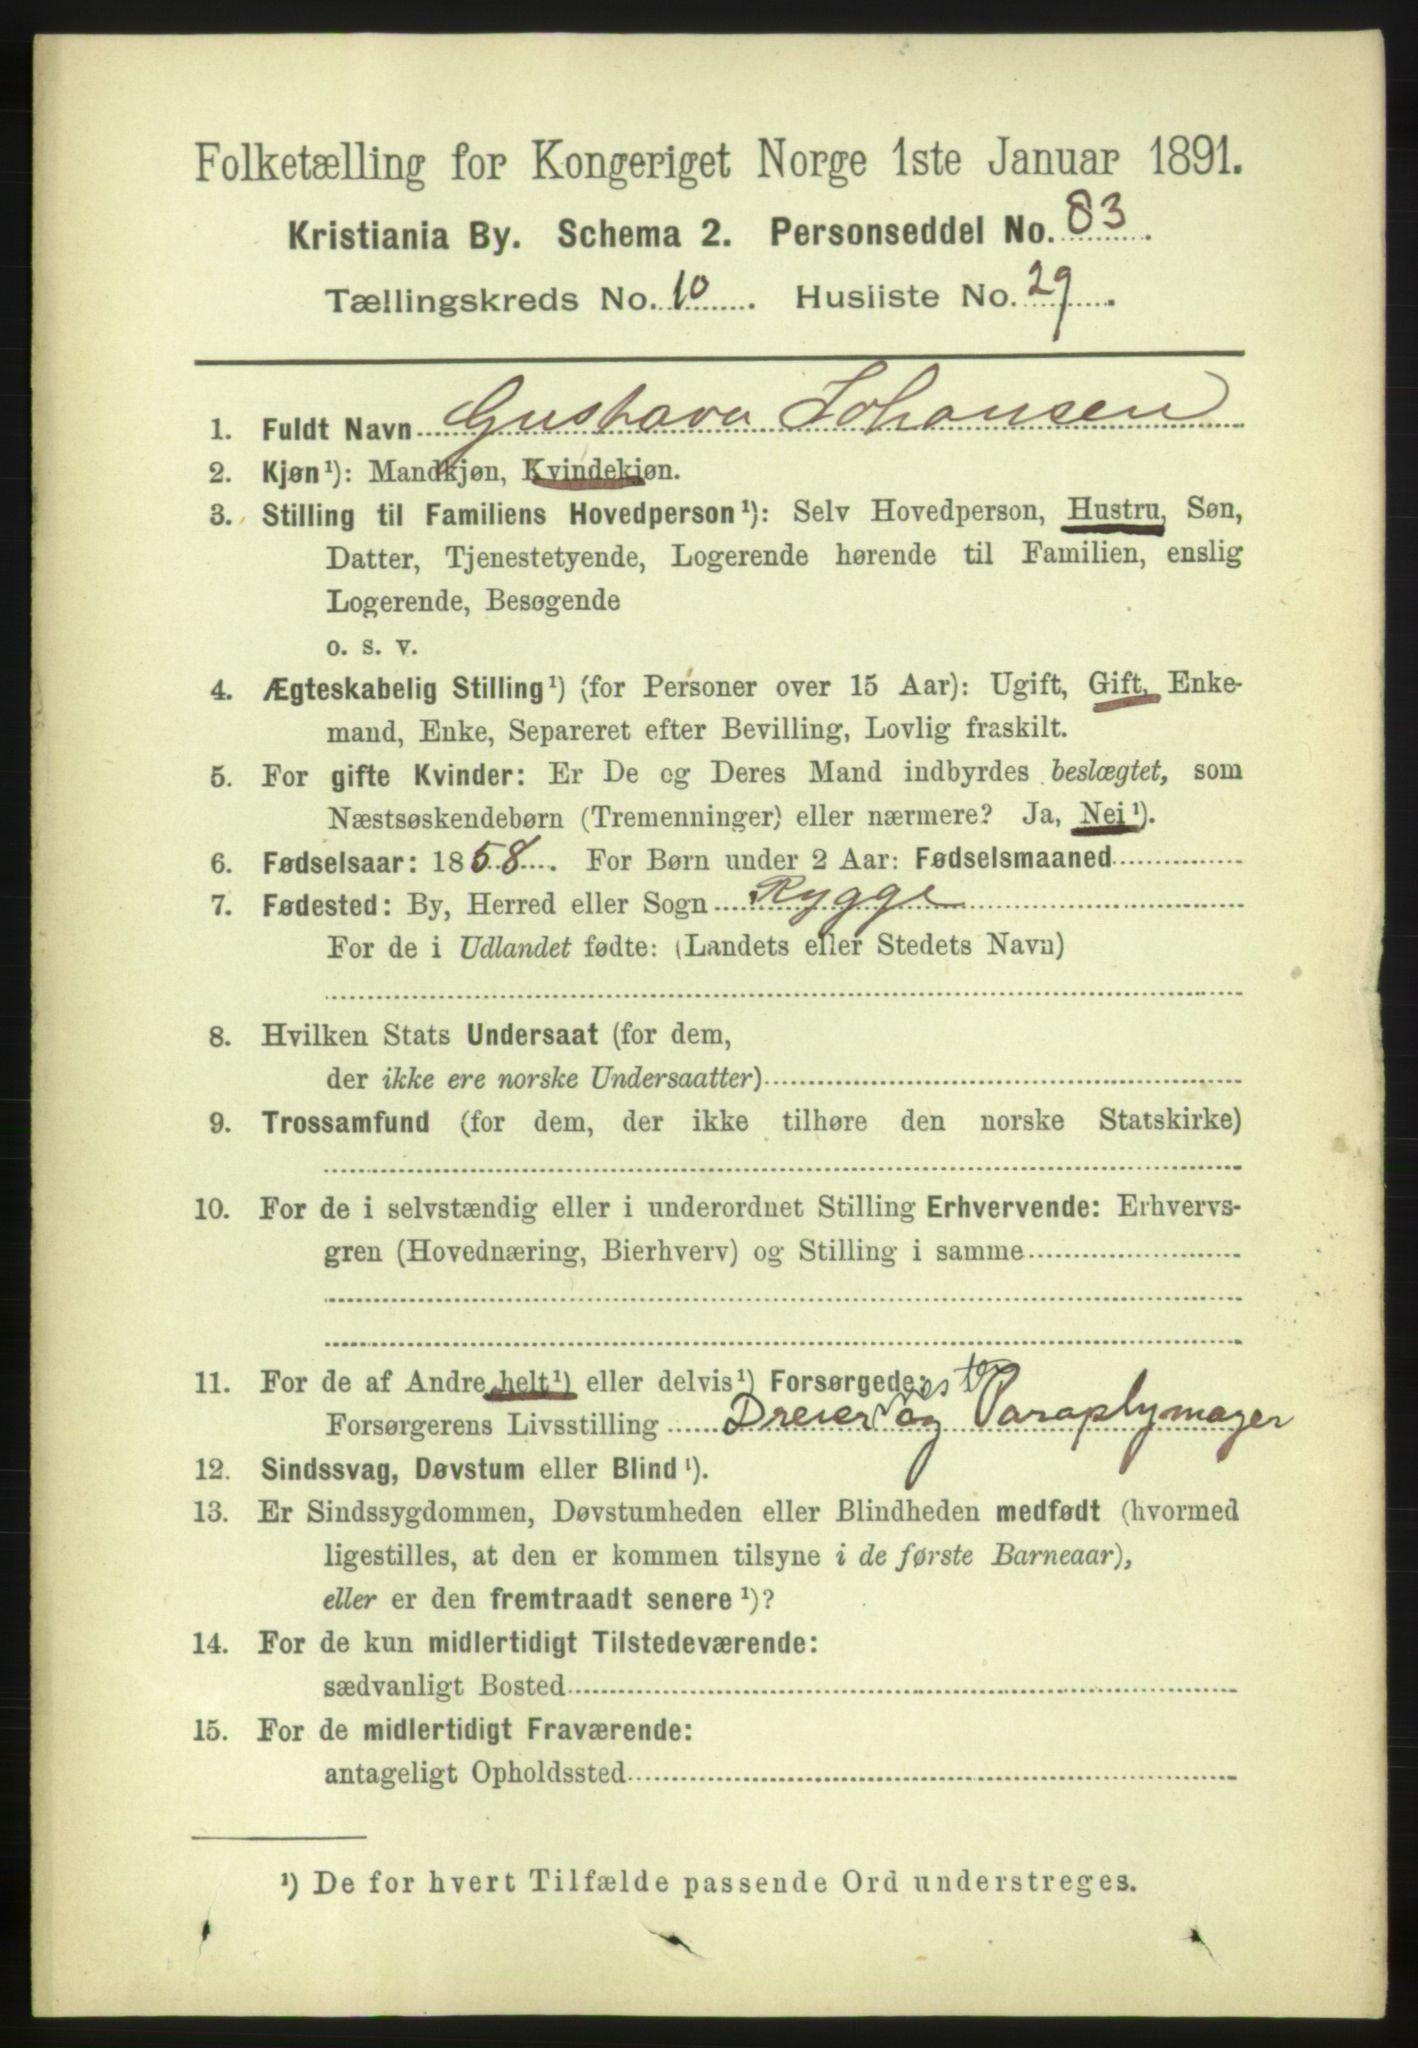 Folketælling for Kongeriget Norge 1ste Januar 1891.
Kristiania By. Schema 2. Personseddel No. 83.
Tællingskreds No. 10. Husliste No. 29.
1. Fuldt Navn Gustava Johansen
2. Kjøn¹): Mandkjøn, Kvindekjøn.
3. Stilling til Familiens Hovedperson¹): Selv Hovedperson, Hustru, Søn,
Datter, Tjenestetyende, Logerende hørende til Familien, enslig
Logerende, Besøgende
o. s. v.
4. Ægteskabelig Stilling¹) (for Personer over 15 Aar): Ugift, Gift, Enke-
mand, Enke, Separeret efter Bevilling, Lovlig fraskilt.
5. For gifte Kvinder: Er De og Deres Mand indbyrdes beslægtet, som
Næstsøskendebørn (Tremenninger) eller nærmere? Ja, Nei¹).
6. Fødselsaar: 1858. For Børn under 2 Aar: Fødselsmaaned
7. Fødested: By, Herred eller Sogn Rygge
For de i Udlandet fødte: (Landets eller Stedets Navn)
8. Hvilken Stats Undersaat (for dem,
der ikke ere norske Undersaatter)
9. Trossamfund (for dem, der ikke tilhøre den norske Statskirke)
10. For de i selvstændig eller i underordnet Stilling Erhvervende: Erhvervs-
gren (Hovednæring, Bierhverv) og Stilling i samme
11. For de af Andre helt¹) eller delvis¹) Forsørgede:
Forsørgerens Livsstilling Dreier og Paraplymager
12. Sindssvag, Døvstum eller Blind¹).
13. Er Sindssygdommen, Døvstumheden eller Blindheden medfødt (hvormed
ligestilles, at den er kommen tilsyne i de første Barneaar),
eller er den fremtraadt senere¹)?
14. For de kun midlertidigt Tilstedeværende:
sædvanligt Bosted
15. For de midlertidigt Fraværende:
antageligt Opholdssted
¹) De for hvert Tilfælde passende Ord understreges.